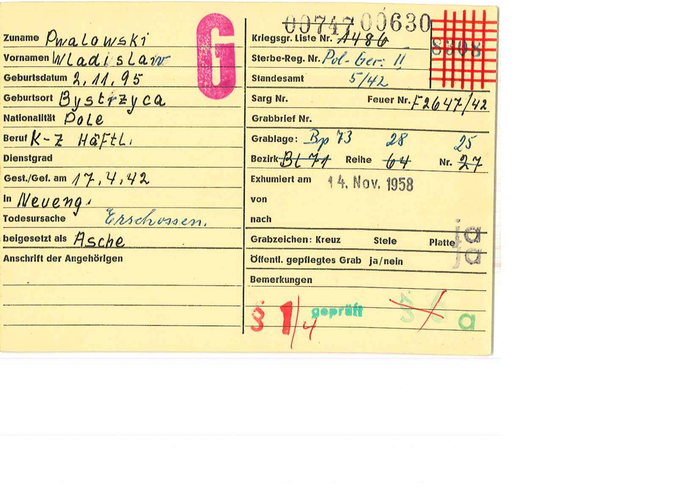 00747 00630
G
Zuname Pwalowski
Vornamen Wladislaw
Geburtsdatum 2.11.95
Geburtsort Bystrzyca
Nationalität Pole
Beruf K-Z Häftl.
Dienstgrad
Gest./Gef. am 17.4.42
in Neueng.
Todesursache Erschossen.
beigesetzt als Asche
Anschrift der Angehörigen
Kriegsgr. Liste Nr. 1486
Sterbe-Reg. Nr. Pol-Ger. II
Standesamt 5/42
Sarg Nr. Feuer Nr. F2647/42
Grabbrief Nr.
Grablage: Bp 73 28 25
Bezirk Bl 71 Reihe 64 Nr. 27
Exhumiert am 14. Nov. 1958
von
nach
Grabzeichen: Kreuz Stele Platte ja
Öffentl. gepflegtes Grab ja/nein ja
Bemerkungen
§ 1/4 geprüft § a